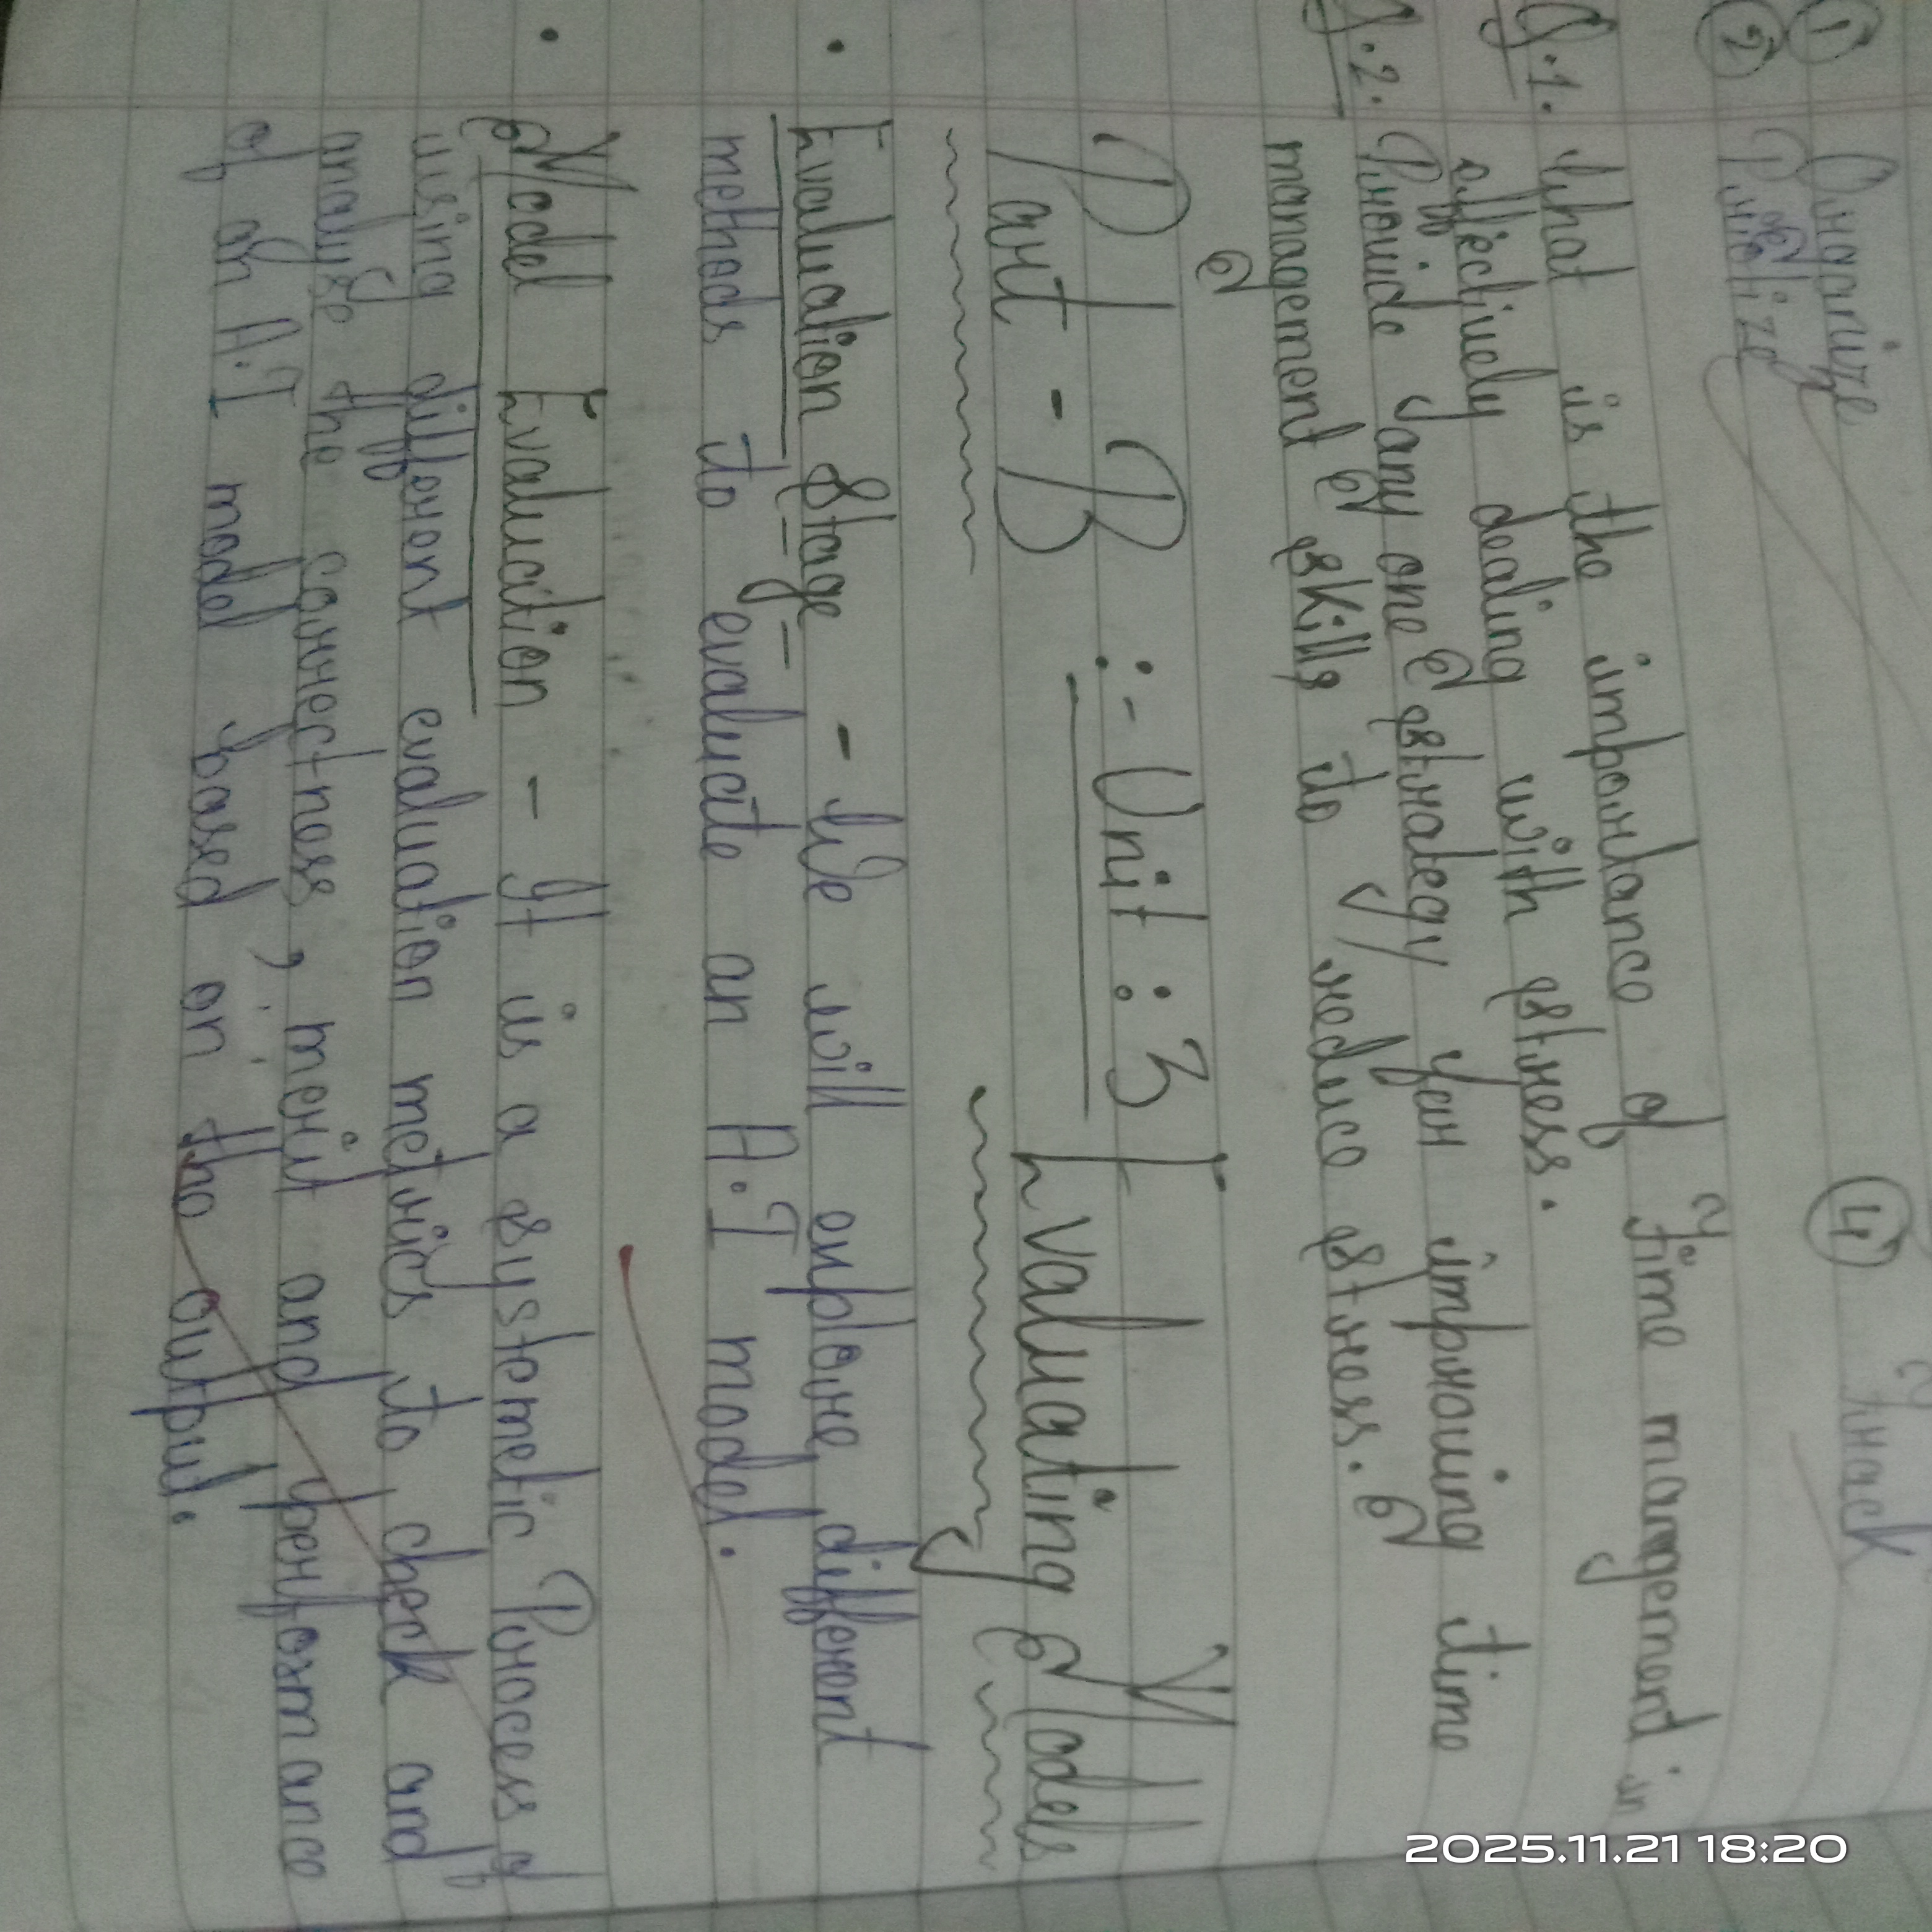 ① Organize ④ Track
② Prioritize
Q.1. What is the importance of Time management in
effectively dealing with stress.
Q.2. Provide any one strategy for improving time
management skills to reduce stress.
Part - B :- Unit : 3 Evaluating Models
• Evaluation Stage - We will explore different
methods to evaluate an A.I model.
• Model Evaluation - It is a systemetic Process of
using different evaluation metrics to check and
analyse the correctness, merit and performance
of an A.I model based on the output.
2025.11.21 18:20